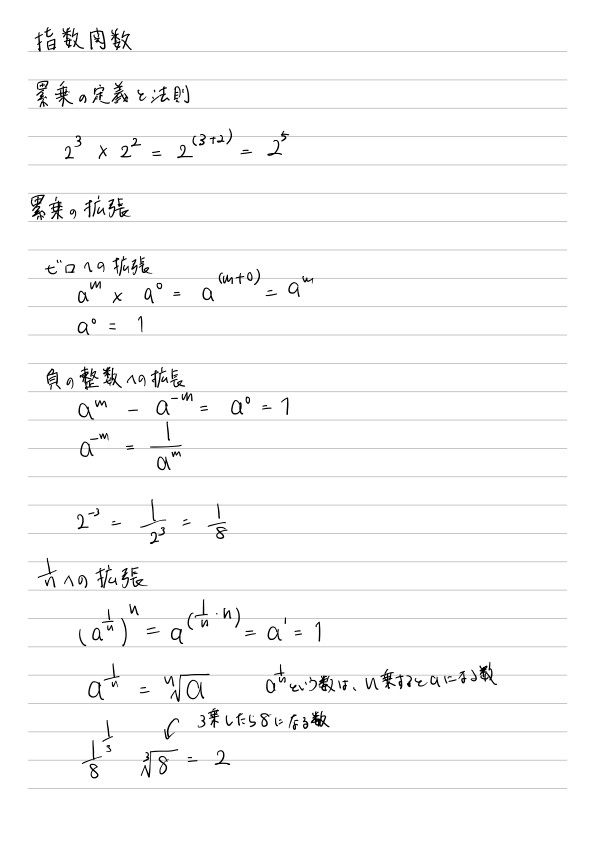 指数関数
累乗の定義と法則
2³ × 2² = 2^(3+2) = 2⁵
累乗の拡張
ゼロへの拡張
a^m × a^0 = a^(m+0) = a^m
a^0 = 1
負の整数への拡張
a^m - a^-m = a^0 = 1
a^-m = 1/a^m
2^-3 = 1/2^3 = 1/8
1/nへの拡張
(a^(1/n))^n = a^(1/n・n) = a^1 = 1
a^(1/n) = ⁿ√a a^(1/n)という数は、n乗するとaになる数
3乗したら8になる数
1/8^(1/3) ³√8 = 2